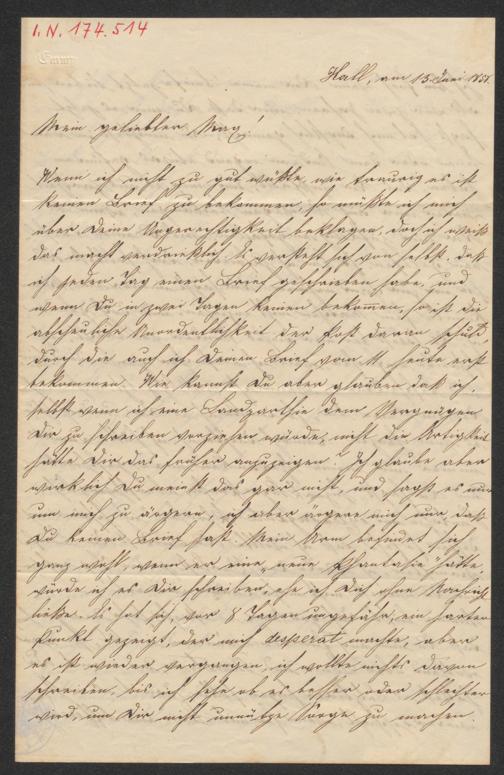 I.N. 174.514
Hall, am 15. Juni 1857.
Mein geliebter Max!
Wenn ich nicht zu gut wüßte, wie traurig es ist
keinen Brief zu bekommen, so müßte ich mich
über Deine Ungerechtigkeit beklagen, doch ich weiß
das macht verdrießlich. Es versteht sich von selbst, daß
ich jeden Tag einen Brief geschrieben habe, und
wenn Du in zwei Tagen keinen bekommen, so ist die
abscheuliche Unordentlichkeit der Post daran schuld
durch die auch ich Deinen Brief vom 11. heute erst
bekommen. Wie kannst Du aber glauben daß ich,
selbst wenn ich eine Landparthie dem Vergnügen
Dir zu schreiben vorziehen würde, nicht die Artigkeit
hätte Dir das früher anzuzeigen? Ich glaube aber
wirklich Du meinst das gar nicht, und sagst es nur
um mich zu ärgern, ich aber ärgere mich nur daß
Du keinen Brief hast. Mein Arm befindet sich
ganz wohl, wenn er eine "neue Phantasie" hätte,
würde ich es Dir schreiben, ehe ich Dich ohne Nachricht
ließe. Es hat sich, vor 8 Tagen ungefähr, ein harter
Punkt gezeigt, der mich desperat machte, aber
es ist wieder vergangen, ich wollte nichts davon
schreiben, bis ich sehe ob es besser oder schlechter
wird, um Dir nicht unnütze Sorge zu machen.